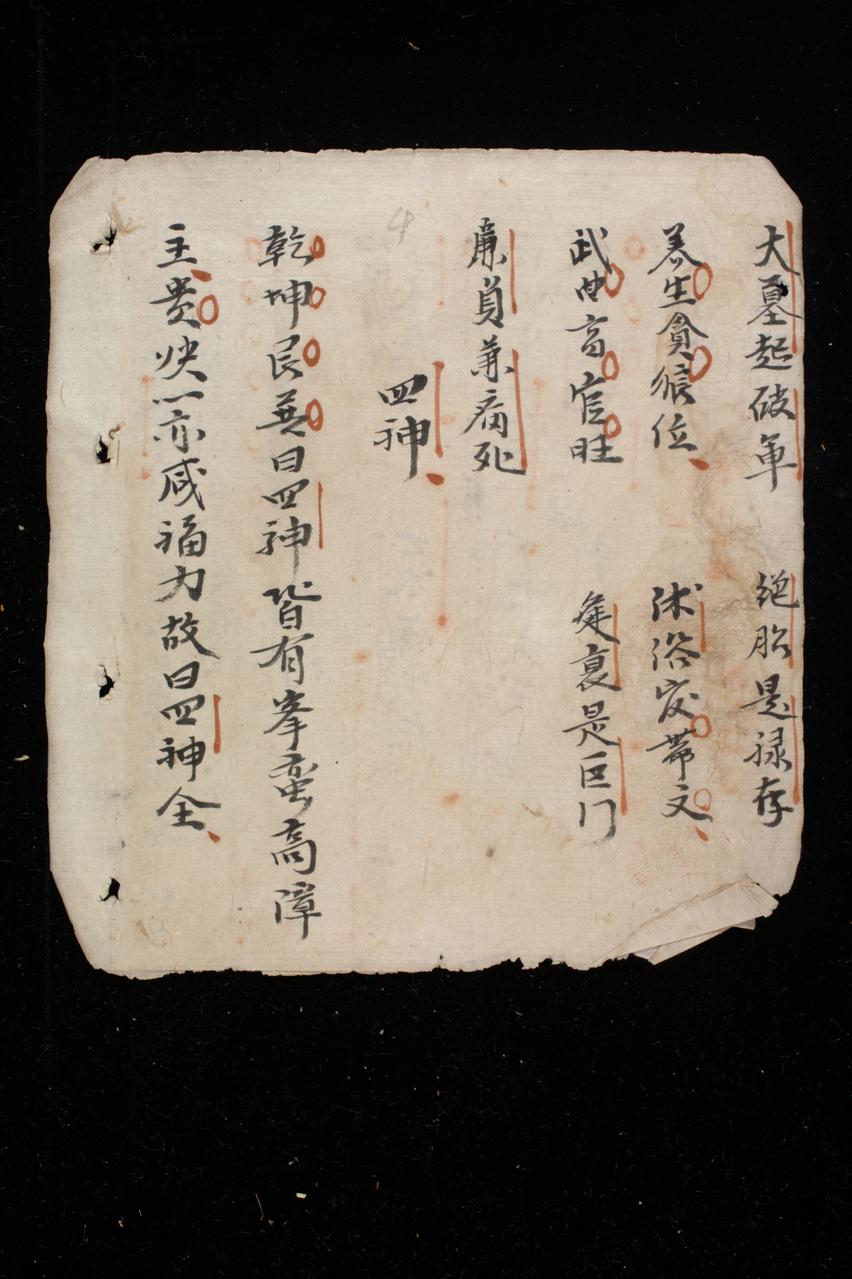 大墓起破軍　絕胎是祿存
养生貪狼位　沐浴㝎帶文
武曲高官旺　衰是巨门
廉貞兼病死
四神
乾坤艮巽曰四神皆有峯巒高障
主貴缺一亦咸福力故曰四神全